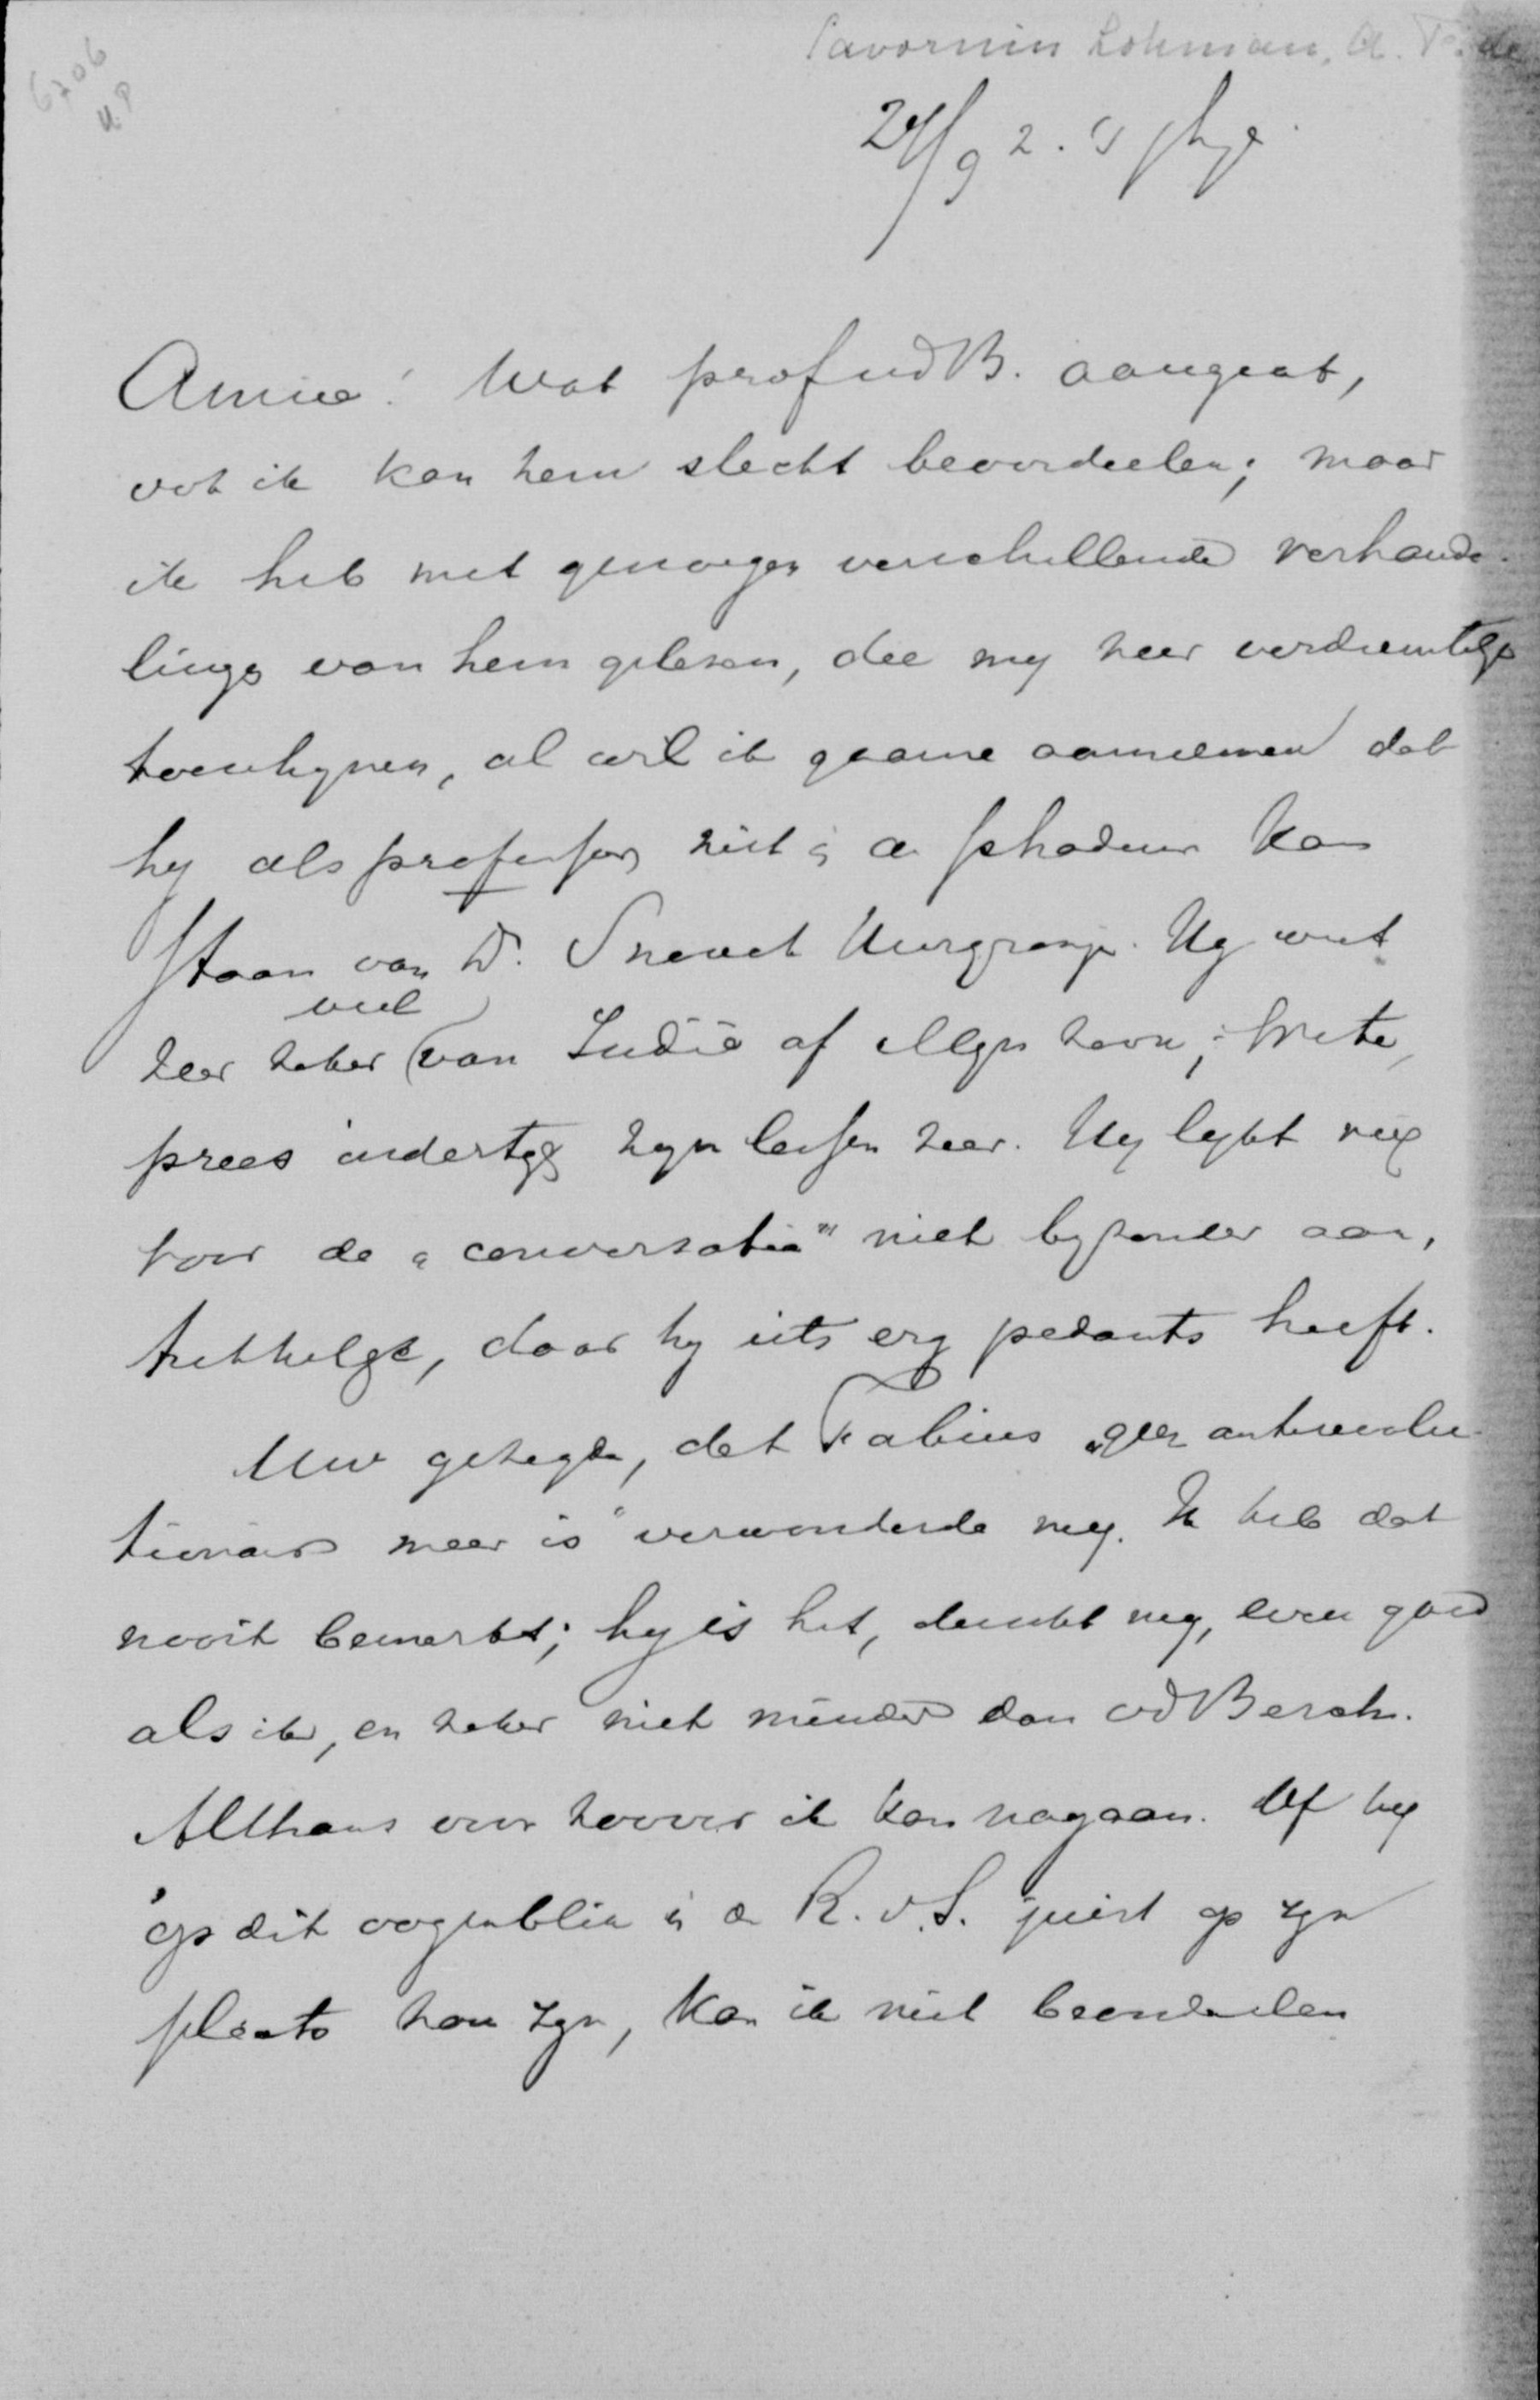 Savornin Lohman, A. F. de
6706
24/9 2.
Amice! Wat prof vd B. aangaat,
ook ik kan hem slecht beoordeelen; maar
ik heb met genoegen verschillende verhande-
lings van hem gelezen, die mij zeer verdienstelijk
toeschijnen, al wil ik gaarne aannemen dat
hij als professor niet in de schaduw kan
staan van Dr. Snouck Hurgronje. Hij weet
veel
zeer zeker van Indië af. Mijn zoon, Witte,
prees indertijd zijn lessen zeer. Hij lijkt mij
voor de "conversatie" niet bijzonder aan,
trekkelijk, daar hij iets erg pedants heeft.
Uw gezegde, dat Fabius "geen antirevolu-
tionair meer is" verwonderde mij. Ik heb dat
nooit bemerkt; hij is het, dunkt mij, even goed
als ik, en zeker niet minder dan vd Bergh.
Althans voor zoover ik kan nagaan. Of hij
op dit oogenblik in de R.v.S. juist op zijn
plaats zou zijn, kan ik niet beoordeelen